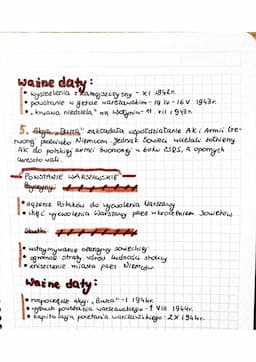 ważne daty:
• wysiedlenia z Zamojszczyzny - XI 1942r.
• powstanie w getcie warszawskim - 19 IV - 16 V 1943r.
• "krwawa niedziela" na Wołyniu - 11 VII 1943r.
5. Akcja "Burza" zakładała współdziałanie AK i Armii Cze-
rwonej przeciwko Niemcom. Jednak Sowieci wcielali żołnierzy
AK do polskiej armii tworzonej u boku ZSRS, a opornych
aresztowali.
POWSTANIE WARSZAWSKIE
Przyczyny:
• dążenie Polaków do wyzwolenia Warszawy
• chęć wyzwolenia Warszawy przed wkroczeniem Sowietów
Skutki:
• wstrzymywanie ofensywy sowieckiej
• ogromne straty wśród ludności stolicy
• zniszczenie miasta przez Niemców
Ważne daty:
• rozpoczęcie akcji "Burza" - I 1944r.
• wybuch powstania warszawskiego - 1 VIII 1944r.
• kapitulacja powstania warszawskiego - 2 X 1944r.